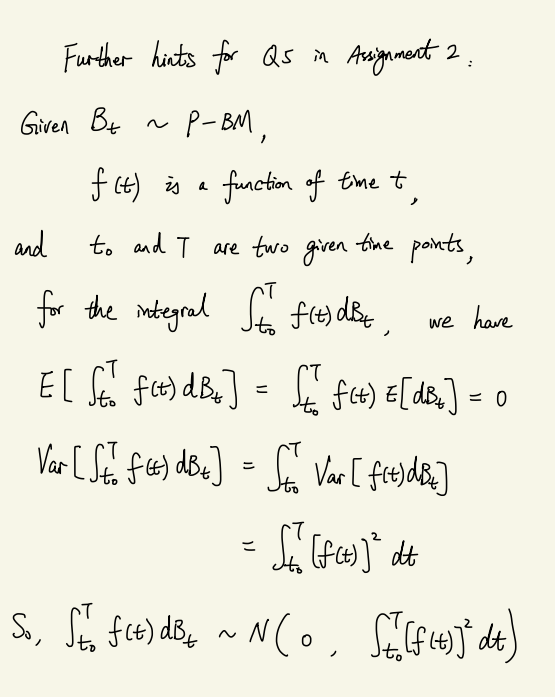 Further hints for Q5 in Assignment 2:
Given B_t ~ P-BM,
f(t) is a function of time t,
and t₀ and T are two given time points,
for the integral ∫_{t₀}^{T} f(t) dB_t, we have
E[∫_{t₀}^{T} f(t) dB_t] = ∫_{t₀}^{T} f(t) E[dB_t] = 0
Var[∫_{t₀}^{T} f(t) dB_t] = ∫_{t₀}^{T} Var[f(t)dB_t]
= ∫_{t₀}^{T} [f(t)]² dt
So, ∫_{t₀}^{T} f(t) dB_t ~ N(0, ∫_{t₀}^{T} [f(t)]² dt)